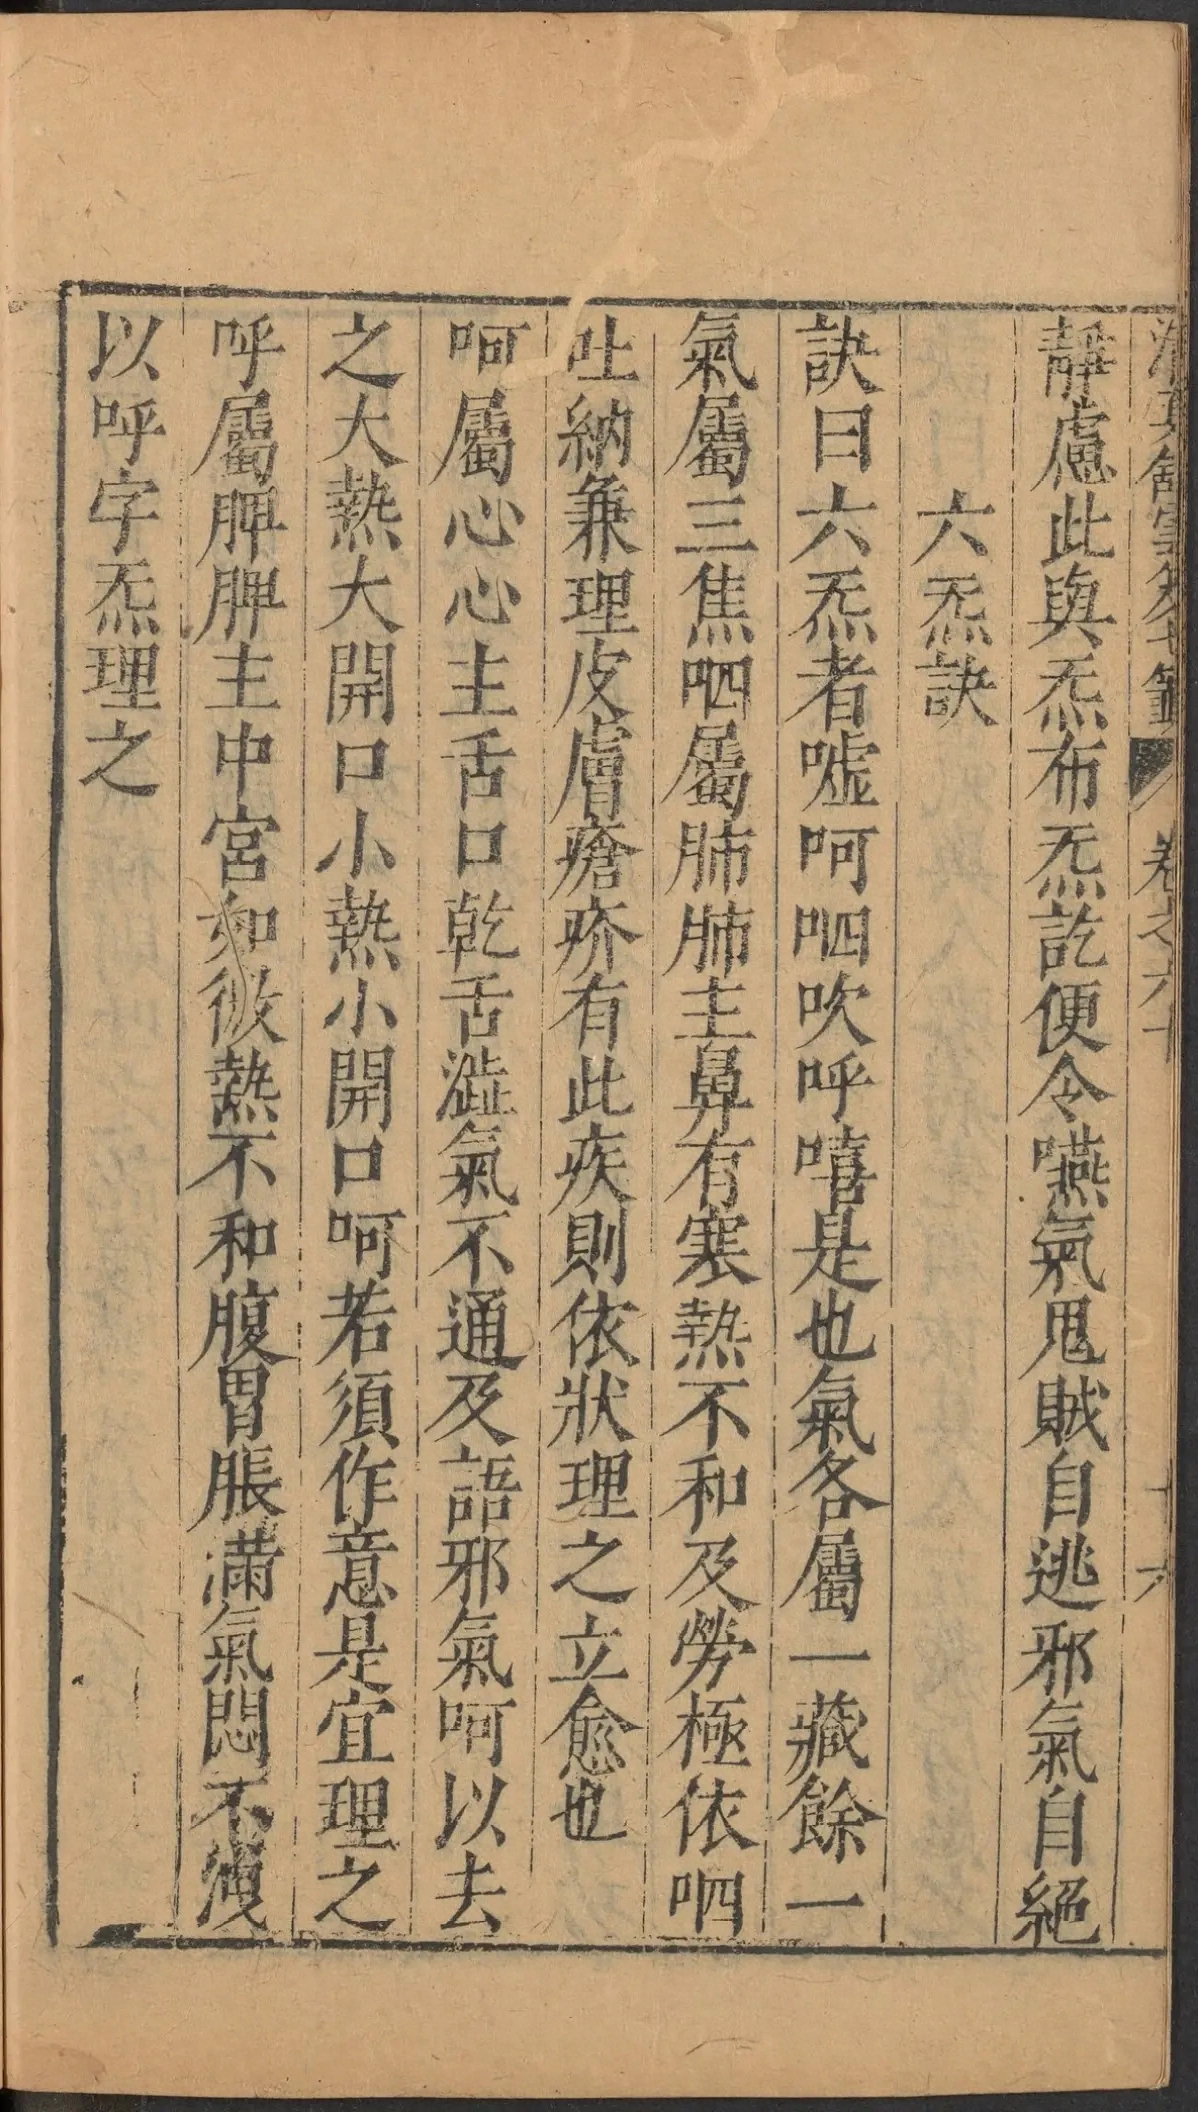 清真舘雲笈七籤 卷之六十 十六
靜慮此與炁布炁訖便令嚥氣鬼賊自逃邪氣自絕
六炁訣
訣曰六炁者嘘呵呬吹呼嘻是也氣各屬一藏餘一
氣屬三焦呬屬肺肺主鼻有寒熱不和及勞極依呬
吐納兼理皮膚瘡疥有此疾則依狀理之立愈也
呵屬心心主舌口乾舌澁氣不通及語邪氣呵以去
之大熱大開口小熱小開口呵若須作意是宜理之
呼屬脾脾主中宮如微熱不和腹胃脹滿氣悶不洩
以呼字炁理之